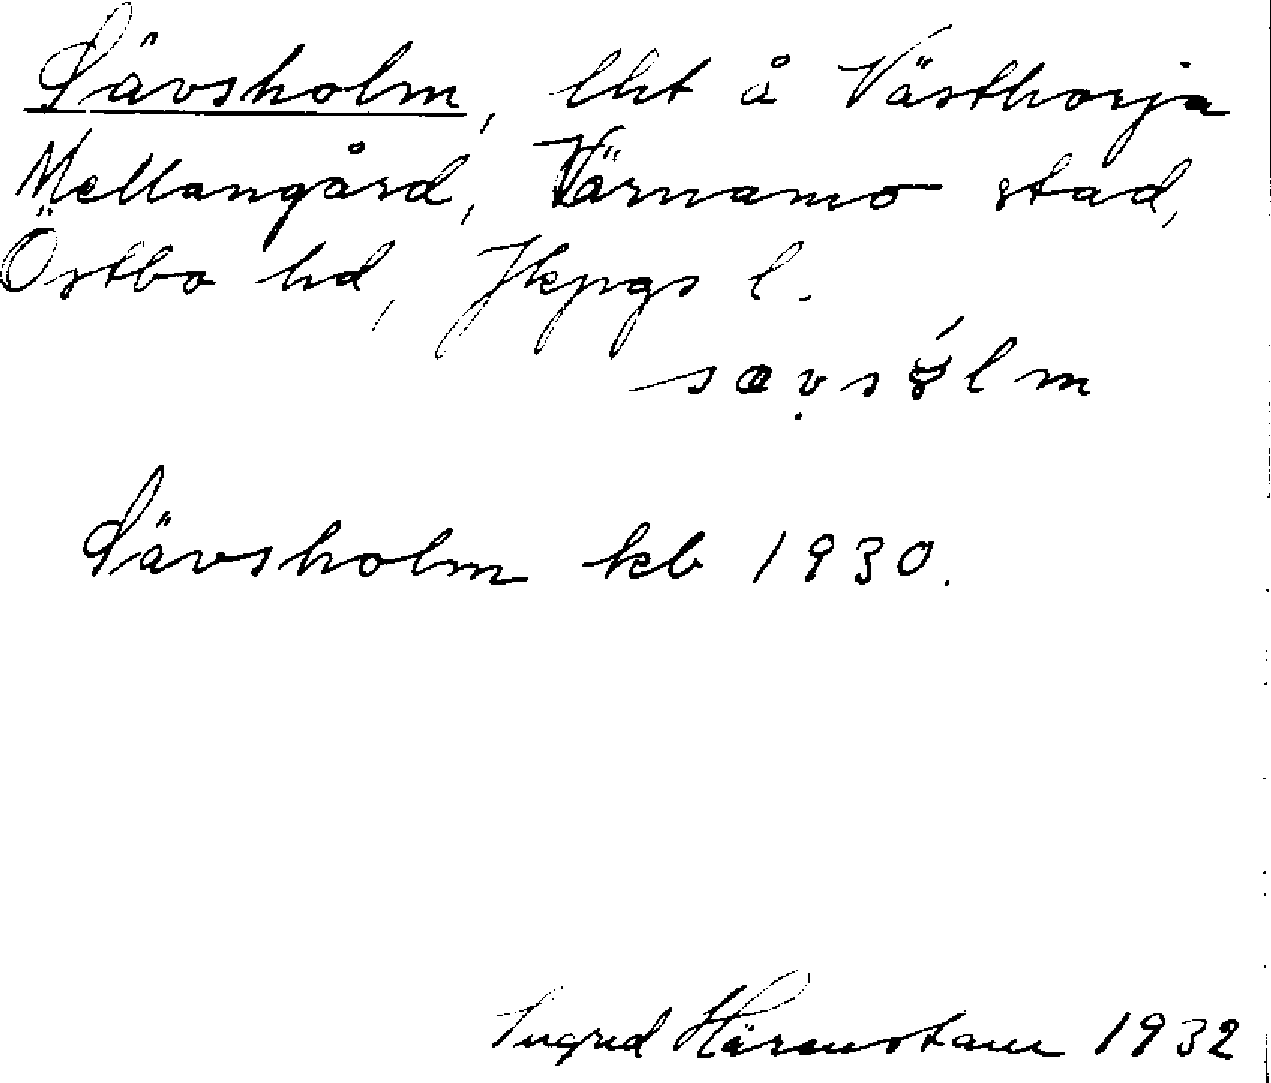 Sävsholm, lht å Västhorja
Mellangård, Värnamo stad,
Östbo hd, Jkpgs l.
Sävsholm kb 1930.
Ingrid 1932